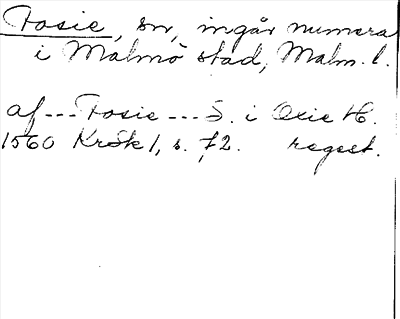 Fosie, sn, ingår numera
i Malmö stad, Malm. l.
af --- Fosie --- S. i Oxie H.
1560 KrSk 1, s. 72. regest.